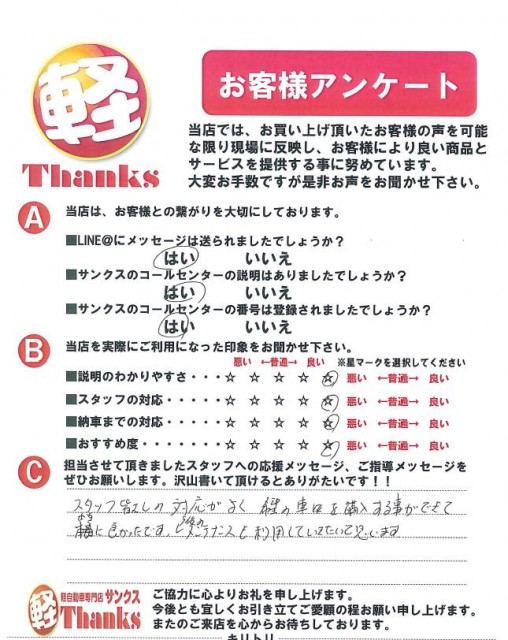 軽
Thanks
お客様アンケート
当店では、お買い上げ頂いたお客様の声を可能
な限り現場に反映し、お客様により良い商品と
サービスを提供する事に努めています。
大変お手数ですが是非お声をお聞かせ下さい。
A 当店は、お客様との繋がりを大切にしております。
■LINE@にメッセージは送られましたでしょうか？
はい いいえ
■サンクスのコールセンターの説明はありましたでしょうか？
はい いいえ
■サンクスのコールセンターの番号は登録されましたでしょうか？
はい いいえ
B 当店を実際にご利用になった印象をお聞かせ下さい。
悪い ←普通→ 良い ※星マークを選択してください
■説明のわかりやすさ・・・・☆ ☆ ☆ ☆ ☆ 悪い ←普通→ 良い
■スタッフの対応・・・・・☆ ☆ ☆ ☆ ☆ 悪い ←普通→ 良い
■納車までの対応・・・・・☆ ☆ ☆ ☆ ☆ 悪い ←普通→ 良い
■おすすめ度・・・・・・・☆ ☆ ☆ ☆ ☆ 悪い ←普通→ 良い
C 担当させて頂きましたスタッフへの応援メッセージ、ご指導メッセージを
ぜひお願いします。沢山書いて頂けるとありがたいです！！
スタッフ皆さんの対応がよく 車を購入する事ができて
良かったです。メンテナンスも利用していきたいと思います
軽自動車専門店 サンクス
軽 Thanks
ご協力に心よりお礼を申し上げます。
今後とも宜しくお引き立てご愛願の程お願い申し上げます。
またのご来店を心からお待ちしております。
キリトリ